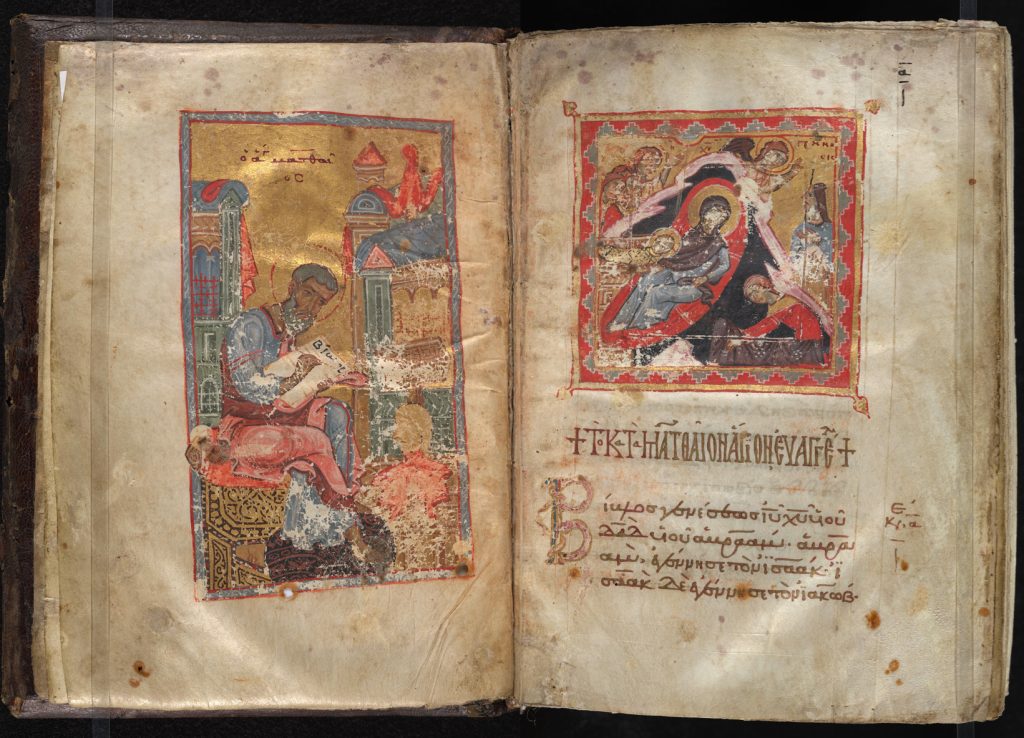 ὁ ἅγ ματθαῖ
ος
Βίβλο
+ΤΟ ΚΑΤΑ ΜΑΤΘΑΙΟΝ ΑΓΙΟΝ ΕΥΑΓΓΕ+
Βίβλος γενέσεως ἰυ χυ υἱοῦ
δαδ υἱοῦ ἀβραάμ· ἀβρα
ὰμ, ἐγέννησε τὸν ἰσαάκ· ἰ
σαὰκ δὲ ἐγέννησε τὸν ἰακώβ·